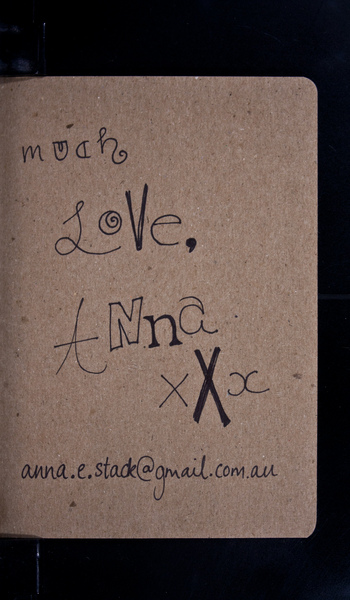 much
Love,
Anna
xXx
anna.e.stade@gmail.com.au